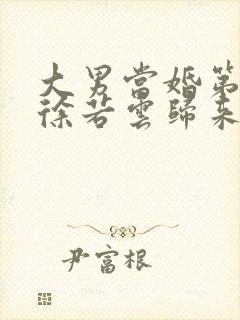 大男當婚第
徐若雲歸來
尹富根